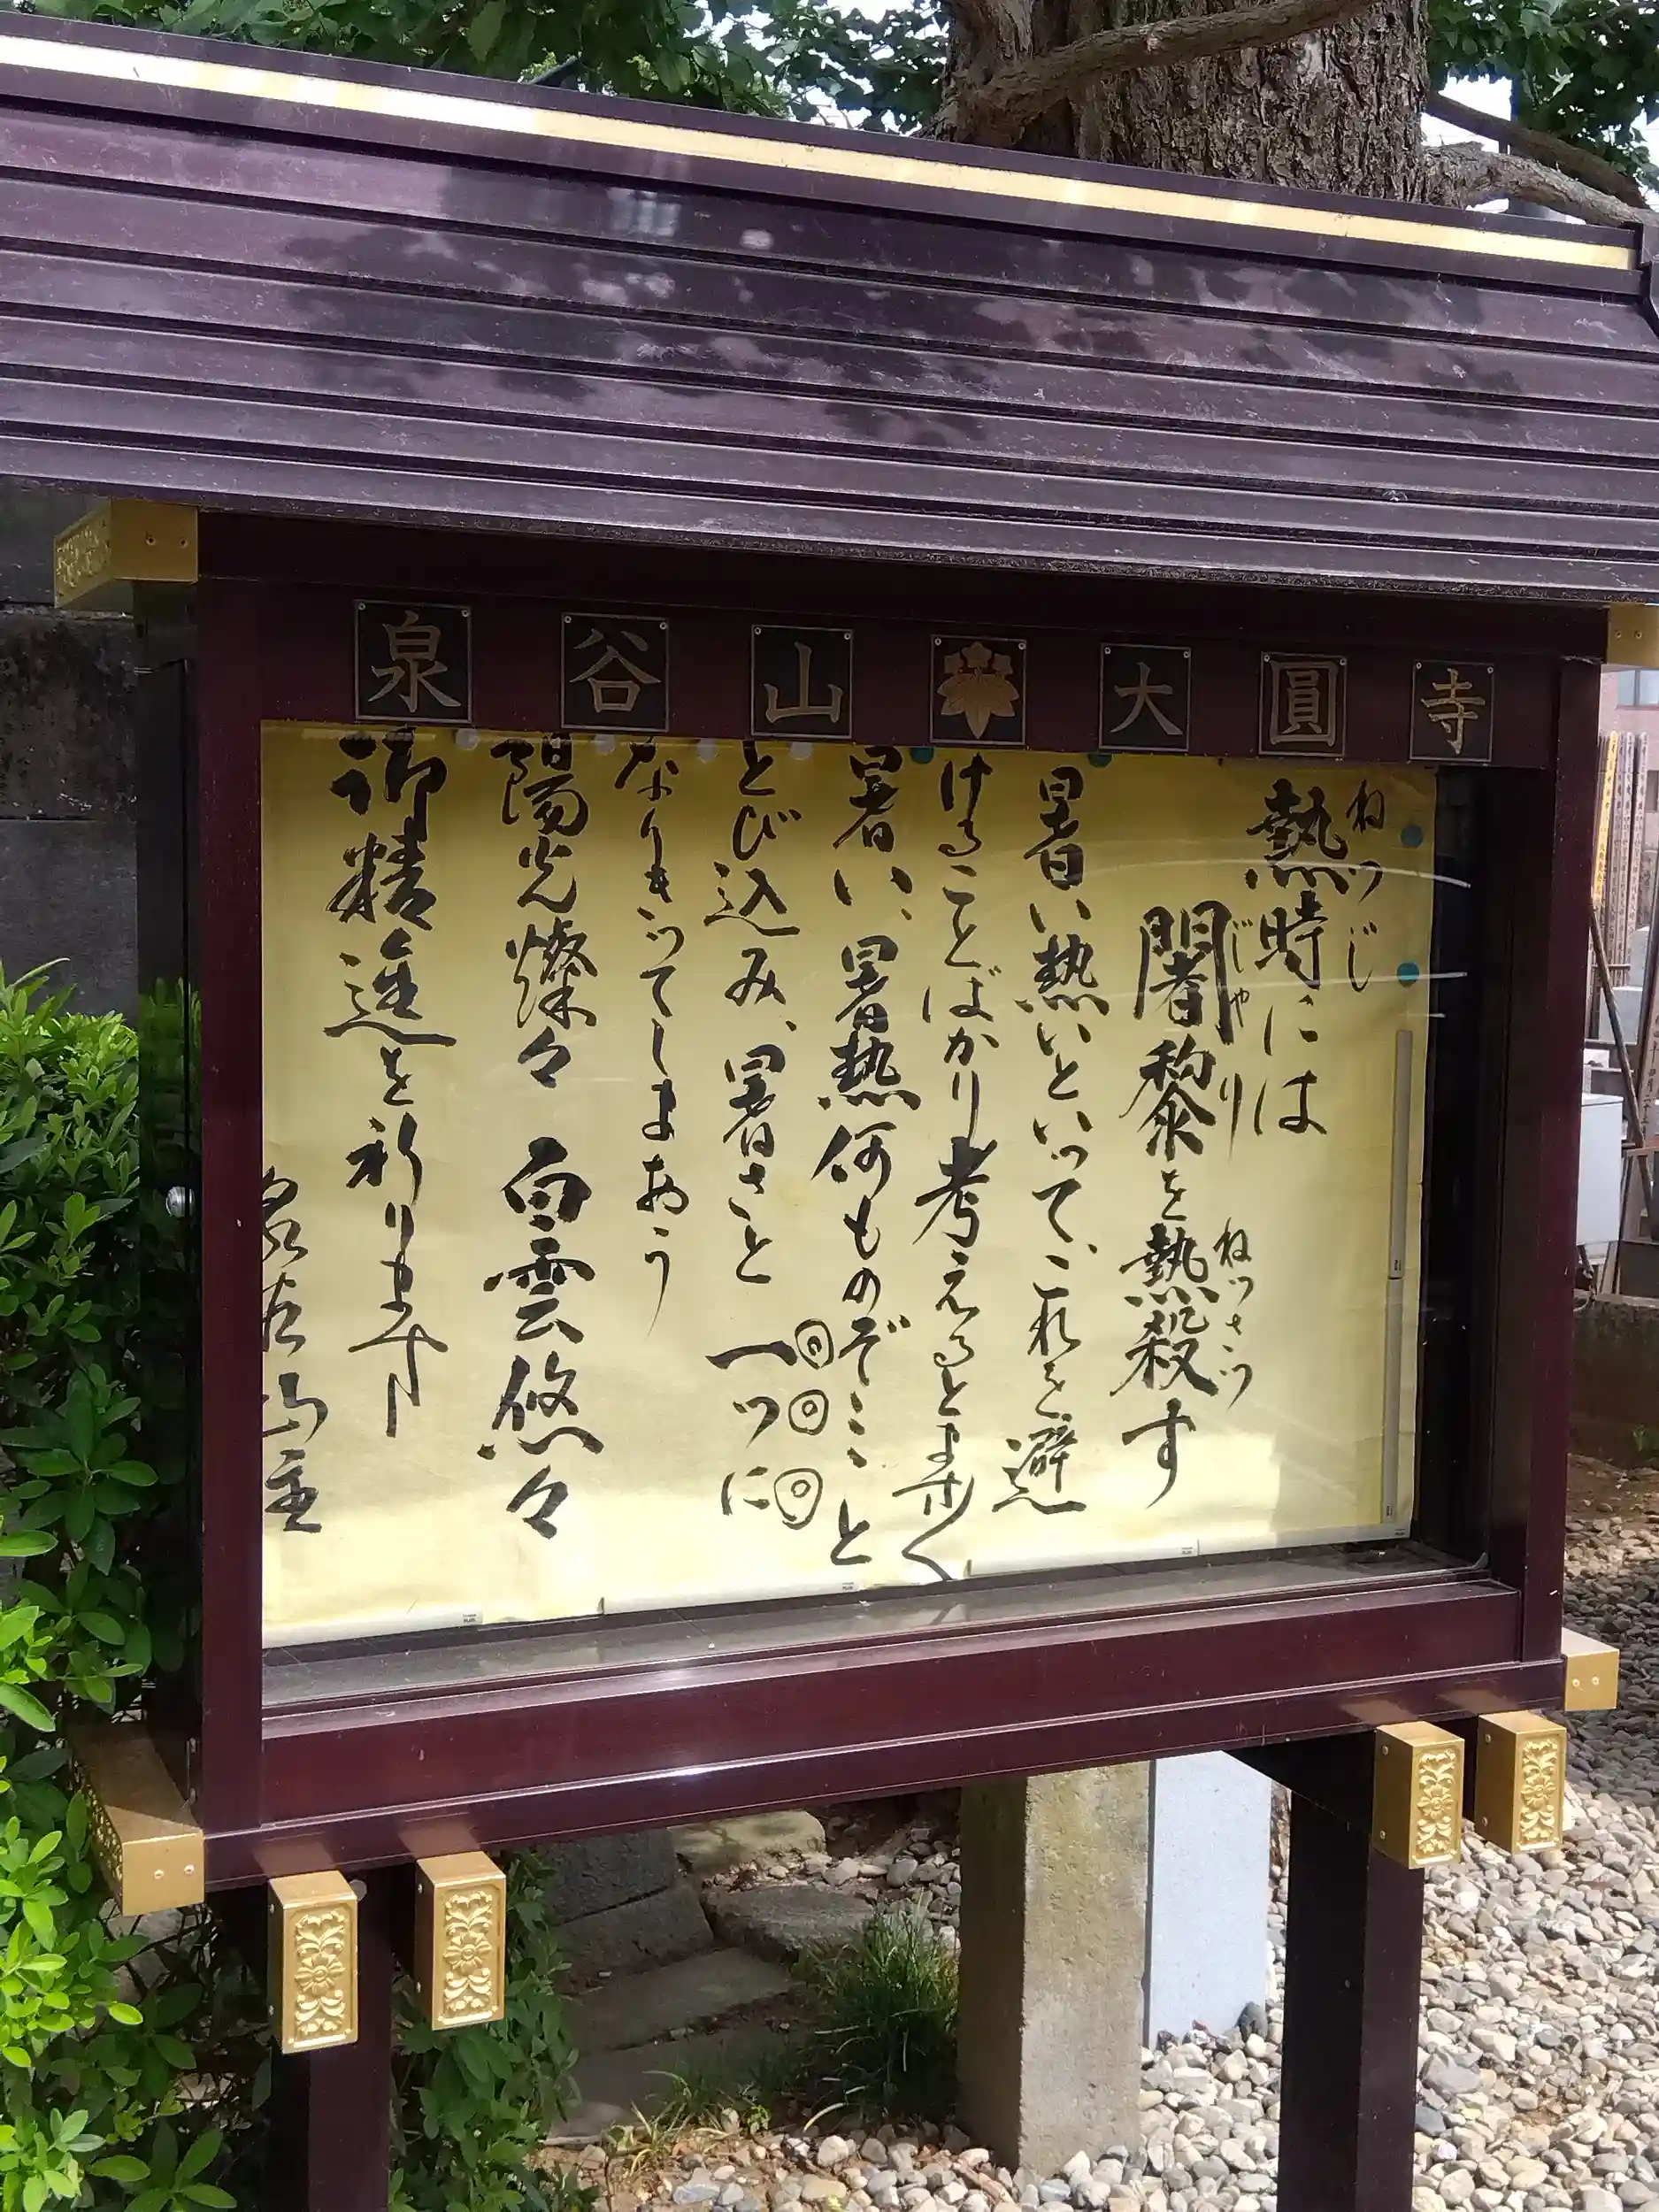 泉谷山 大圓寺
熱時には
ねつじ
闍黎を熱殺す
じゃり ねつさつ
暑い熱いといって、これを避
けることばかり考えるとよ歩く
暑い、暑熱何ものぞミミと
とび込み、暑さと一つに
なりきってしまおう
陽光燦々 白雲悠々
御精進を祈ります
泉谷山主